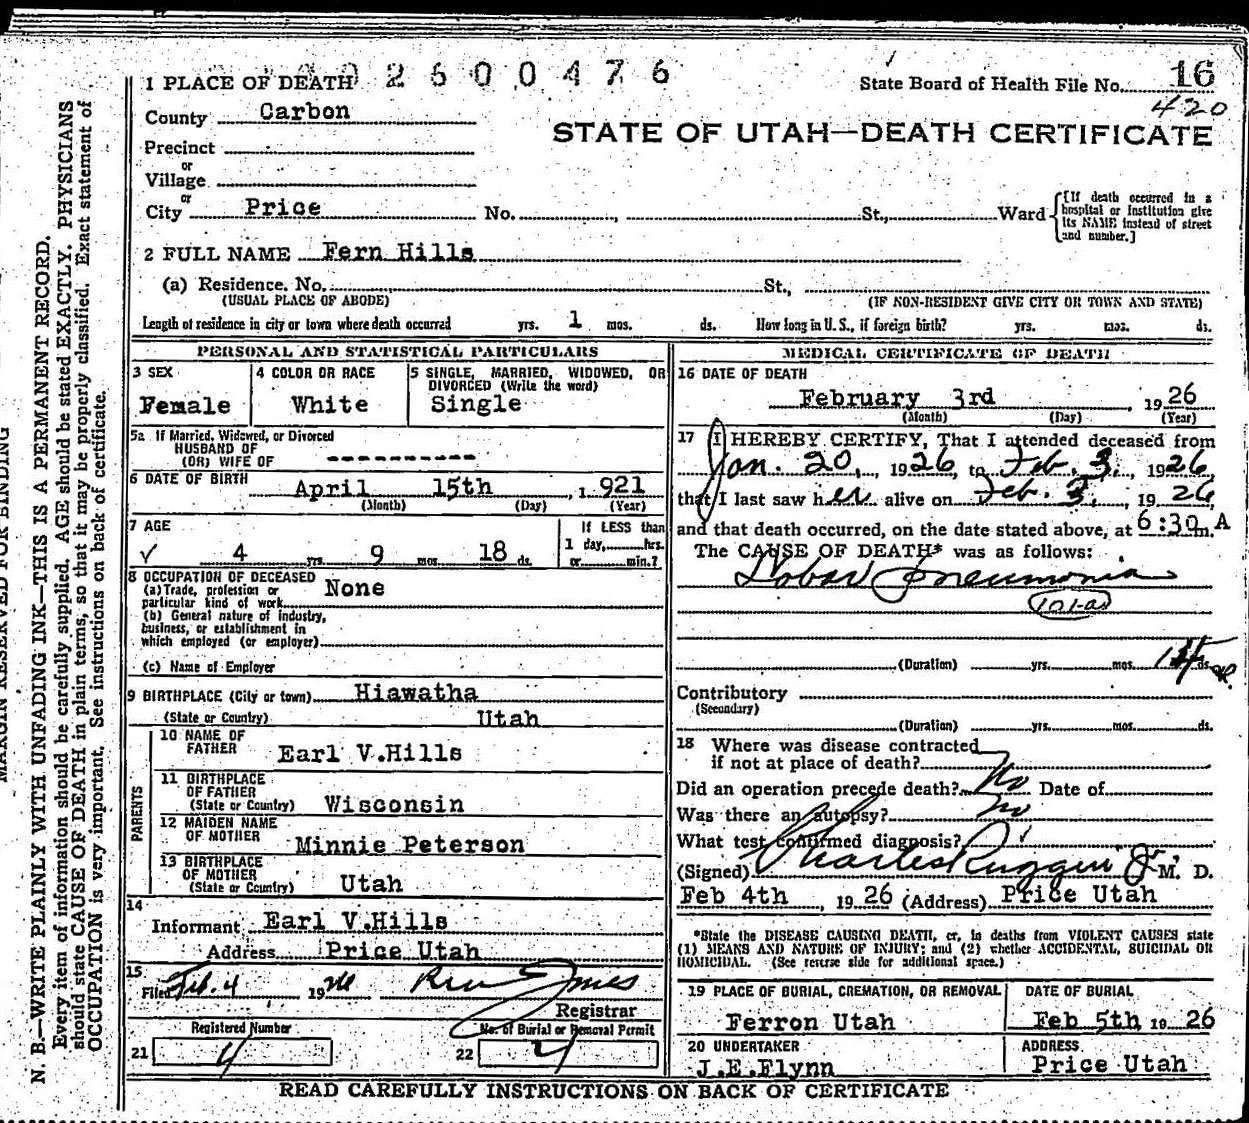 1 PLACE OF DEATH 2600476
State Board of Health File No. 16
420
County Carbon
STATE OF UTAH—DEATH CERTIFICATE
Precinct
or
Village
or
City Price No. , St., Ward {[If death occurred in a hospital or institution give its NAME instead of street and number.]
2 FULL NAME Fern Hills
(a) Residence. No. St.,
(USUAL PLACE OF ABODE) (IF NON-RESIDENT GIVE CITY OR TOWN AND STATE)
Length of residence in city or town where death occurred yrs. 1 mos. ds. How long in U. S., if foreign birth? yrs. mos. ds.
PERSONAL AND STATISTICAL PARTICULARS
3 SEX
Female
4 COLOR OR RACE
White
5 SINGLE, MARRIED, WIDOWED, OR
DIVORCED (Write the word)
Single
5a If Married, Widowed, or Divorced
HUSBAND OF
(OR) WIFE OF ----------
6 DATE OF BIRTH April 15th , 1 921
(Month) (Day) (Year)
7 AGE
✓ 4 yrs. 9 mos. 18 ds.
If LESS than
1 day, hrs.
or min.?
8 OCCUPATION OF DECEASED
(a) Trade, profession or
particular kind of work None
(b) General nature of industry,
business, or establishment in
which employed (or employer)
(c) Name of Employer
9 BIRTHPLACE (City or town) Hiawatha
(State or Country) Utah
PARENTS
10 NAME OF
FATHER Earl V.Hills
11 BIRTHPLACE
OF FATHER
(State or Country) Wisconsin
12 MAIDEN NAME
OF MOTHER Minnie Peterson
13 BIRTHPLACE
OF MOTHER
(State or Country) Utah
14
Informant Earl V.Hills
Address Price Utah
15
Filed Feb. 4 1926
Registrar
Registered Number No. of Burial or Removal Permit
21 4 22 4
MEDICAL CERTIFICATE OF DEATH
16 DATE OF DEATH
February 3rd , 19 26
(Month) (Day) (Year)
17 I HEREBY CERTIFY, That I attended deceased from
Jan. 20, 1926, to Feb. 3, 1926
that I last saw her alive on Feb. 3, 1926,
and that death occurred, on the date stated above, at 6:30 m. A
The CAUSE OF DEATH* was as follows:
Lobar Pneumonia
101-a
(Duration) yrs. mos. ds.
Contributory
(Secondary)
(Duration) yrs. mos. ds.
18 Where was disease contracted
if not at place of death?
Did an operation precede death? No Date of
Was there an autopsy? No
What test confirmed diagnosis?
(Signed) Charles Ruggeri Jr. M. D.
Feb 4th , 19 26 (Address) Price Utah
*State the DISEASE CAUSING DEATH, or, in deaths from VIOLENT CAUSES state
(1) MEANS AND NATURE OF INJURY; and (2) whether ACCIDENTAL, SUICIDAL OR
HOMICIDAL. (See reverse side for additional space.)
19 PLACE OF BURIAL, CREMATION, OR REMOVAL
Ferron Utah
DATE OF BURIAL
Feb 5th 19 26
20 UNDERTAKER
J.E.Flynn
ADDRESS
Price Utah
READ CAREFULLY INSTRUCTIONS ON BACK OF CERTIFICATE
MARGIN RESERVED FOR BINDING
N. B.—WRITE PLAINLY WITH UNFADING INK—THIS IS A PERMANENT RECORD.
Every item of information should be carefully supplied. AGE should be stated EXACTLY. PHYSICIANS
should state CAUSE OF DEATH in plain terms, so that it may be properly classified. Exact statement of
OCCUPATION is very important. See instructions on back of certificate.